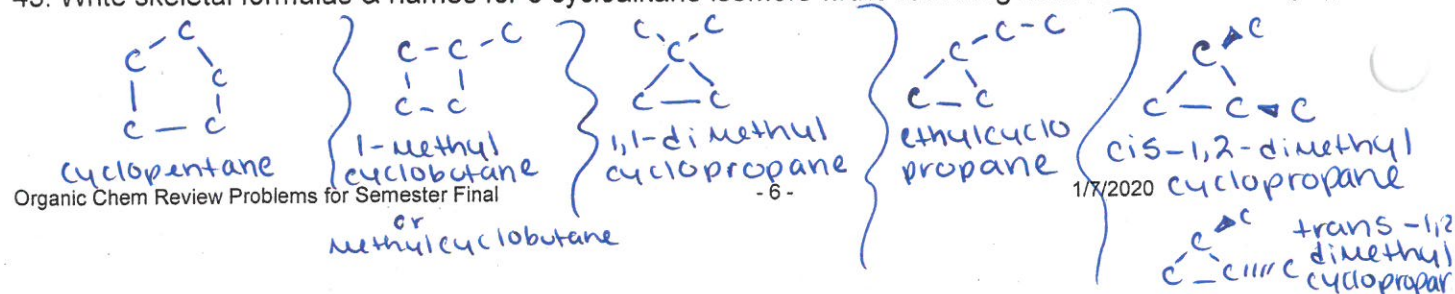 C - C
C C
C - C
cyclopentane
C - C - C
C - C
1-methyl
cyclobutane
or
methylcyclobutane
C C
C
C — C
1,1-dimethyl
cyclopropane
C - C - C
C - C
ethylcyclo
propane
C C
C - C C
cis-1,2-dimethyl
cyclopropane
C C
C - C C
trans-1,2
dimethyl
cyclopropan
Organic Chem Review Problems for Semester Final - 6 - 1/7/2020